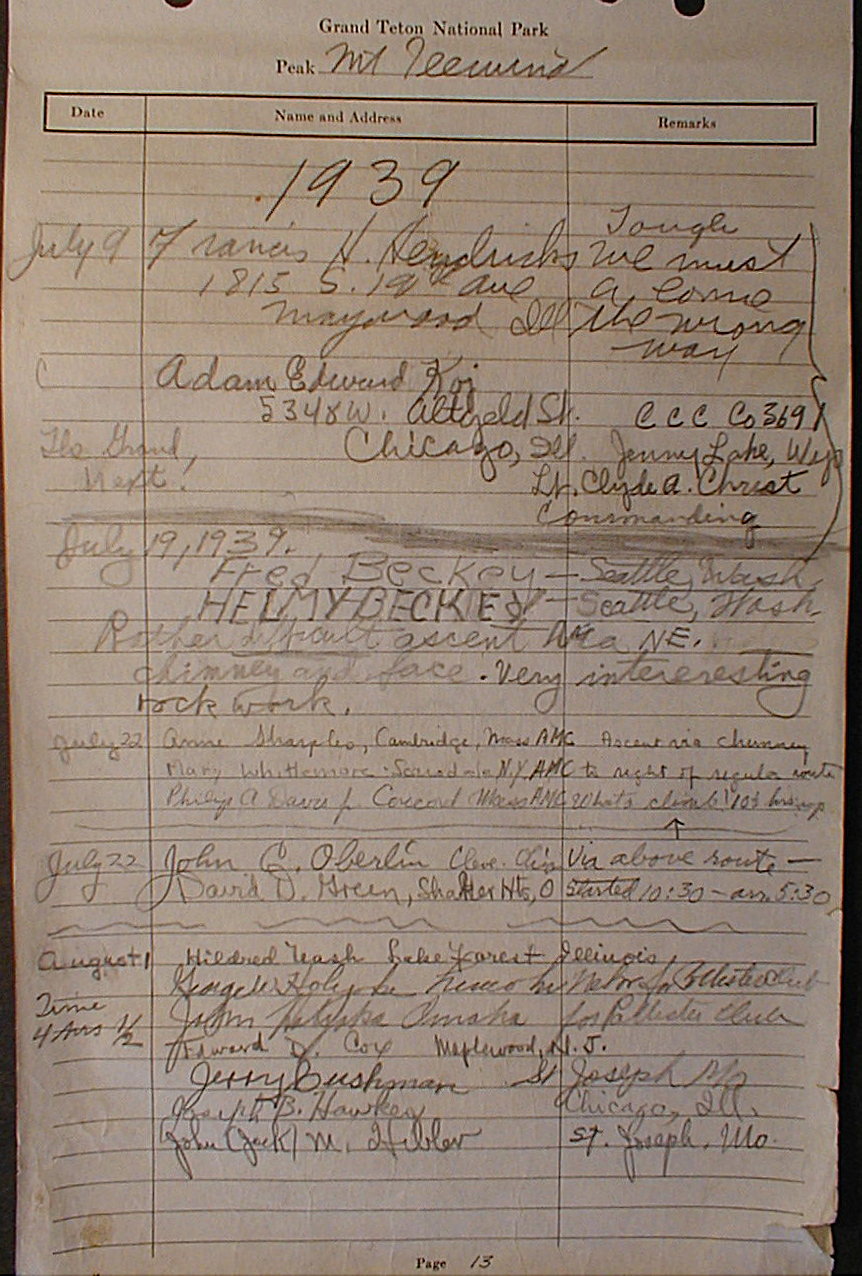 Grand Teton National Park
Peak Mt Teewinot
Date Name and Address Remarks
1939
July 9 Francis H. Hendricks Tough
1815 S. 19th Ave we must
Maywood Ill a come
the wrong
way
Adam Edward Koj
5348 W. Altgeld St. CCC Co 3691
The Grand, Chicago, Ill. Jenny Lake, Wyo
Next! Lt. Clyde A. Christ
Commanding
July 19, 1939.
Fred Beckey — Seattle, Wash
HELMY BECKEY — Seattle, Wash
Rather difficult ascent via NE.
chimney and face. Very intereresting
rock work.
July 22 Anne Sharples, Cambridge, Mass AMC Ascent via chimney
Mary Whittemore Scarsdale N.Y AMC to right of regular route
Philip A Davis Jr Concord Mass AMC What a climb! 10½ hrs up
July 22 John C. Oberlin Cleve. Ohio Via above route —
David D. Green, Shaker Hts, O Started 10:30 – arr. 5:30
August 1 Hildred Nash Lake Forest Illinois
George W Holyoke Nebr for Club
Time John Omaha for Club
4 hrs ½
Edward D. Cox Maplewood, N.J.
Jerry Cushman St Joseph Mo
Joseph B. Hawkey Chicago, Ill.
John (Jack) M. Hibler St. Joseph, Mo.
Page 13